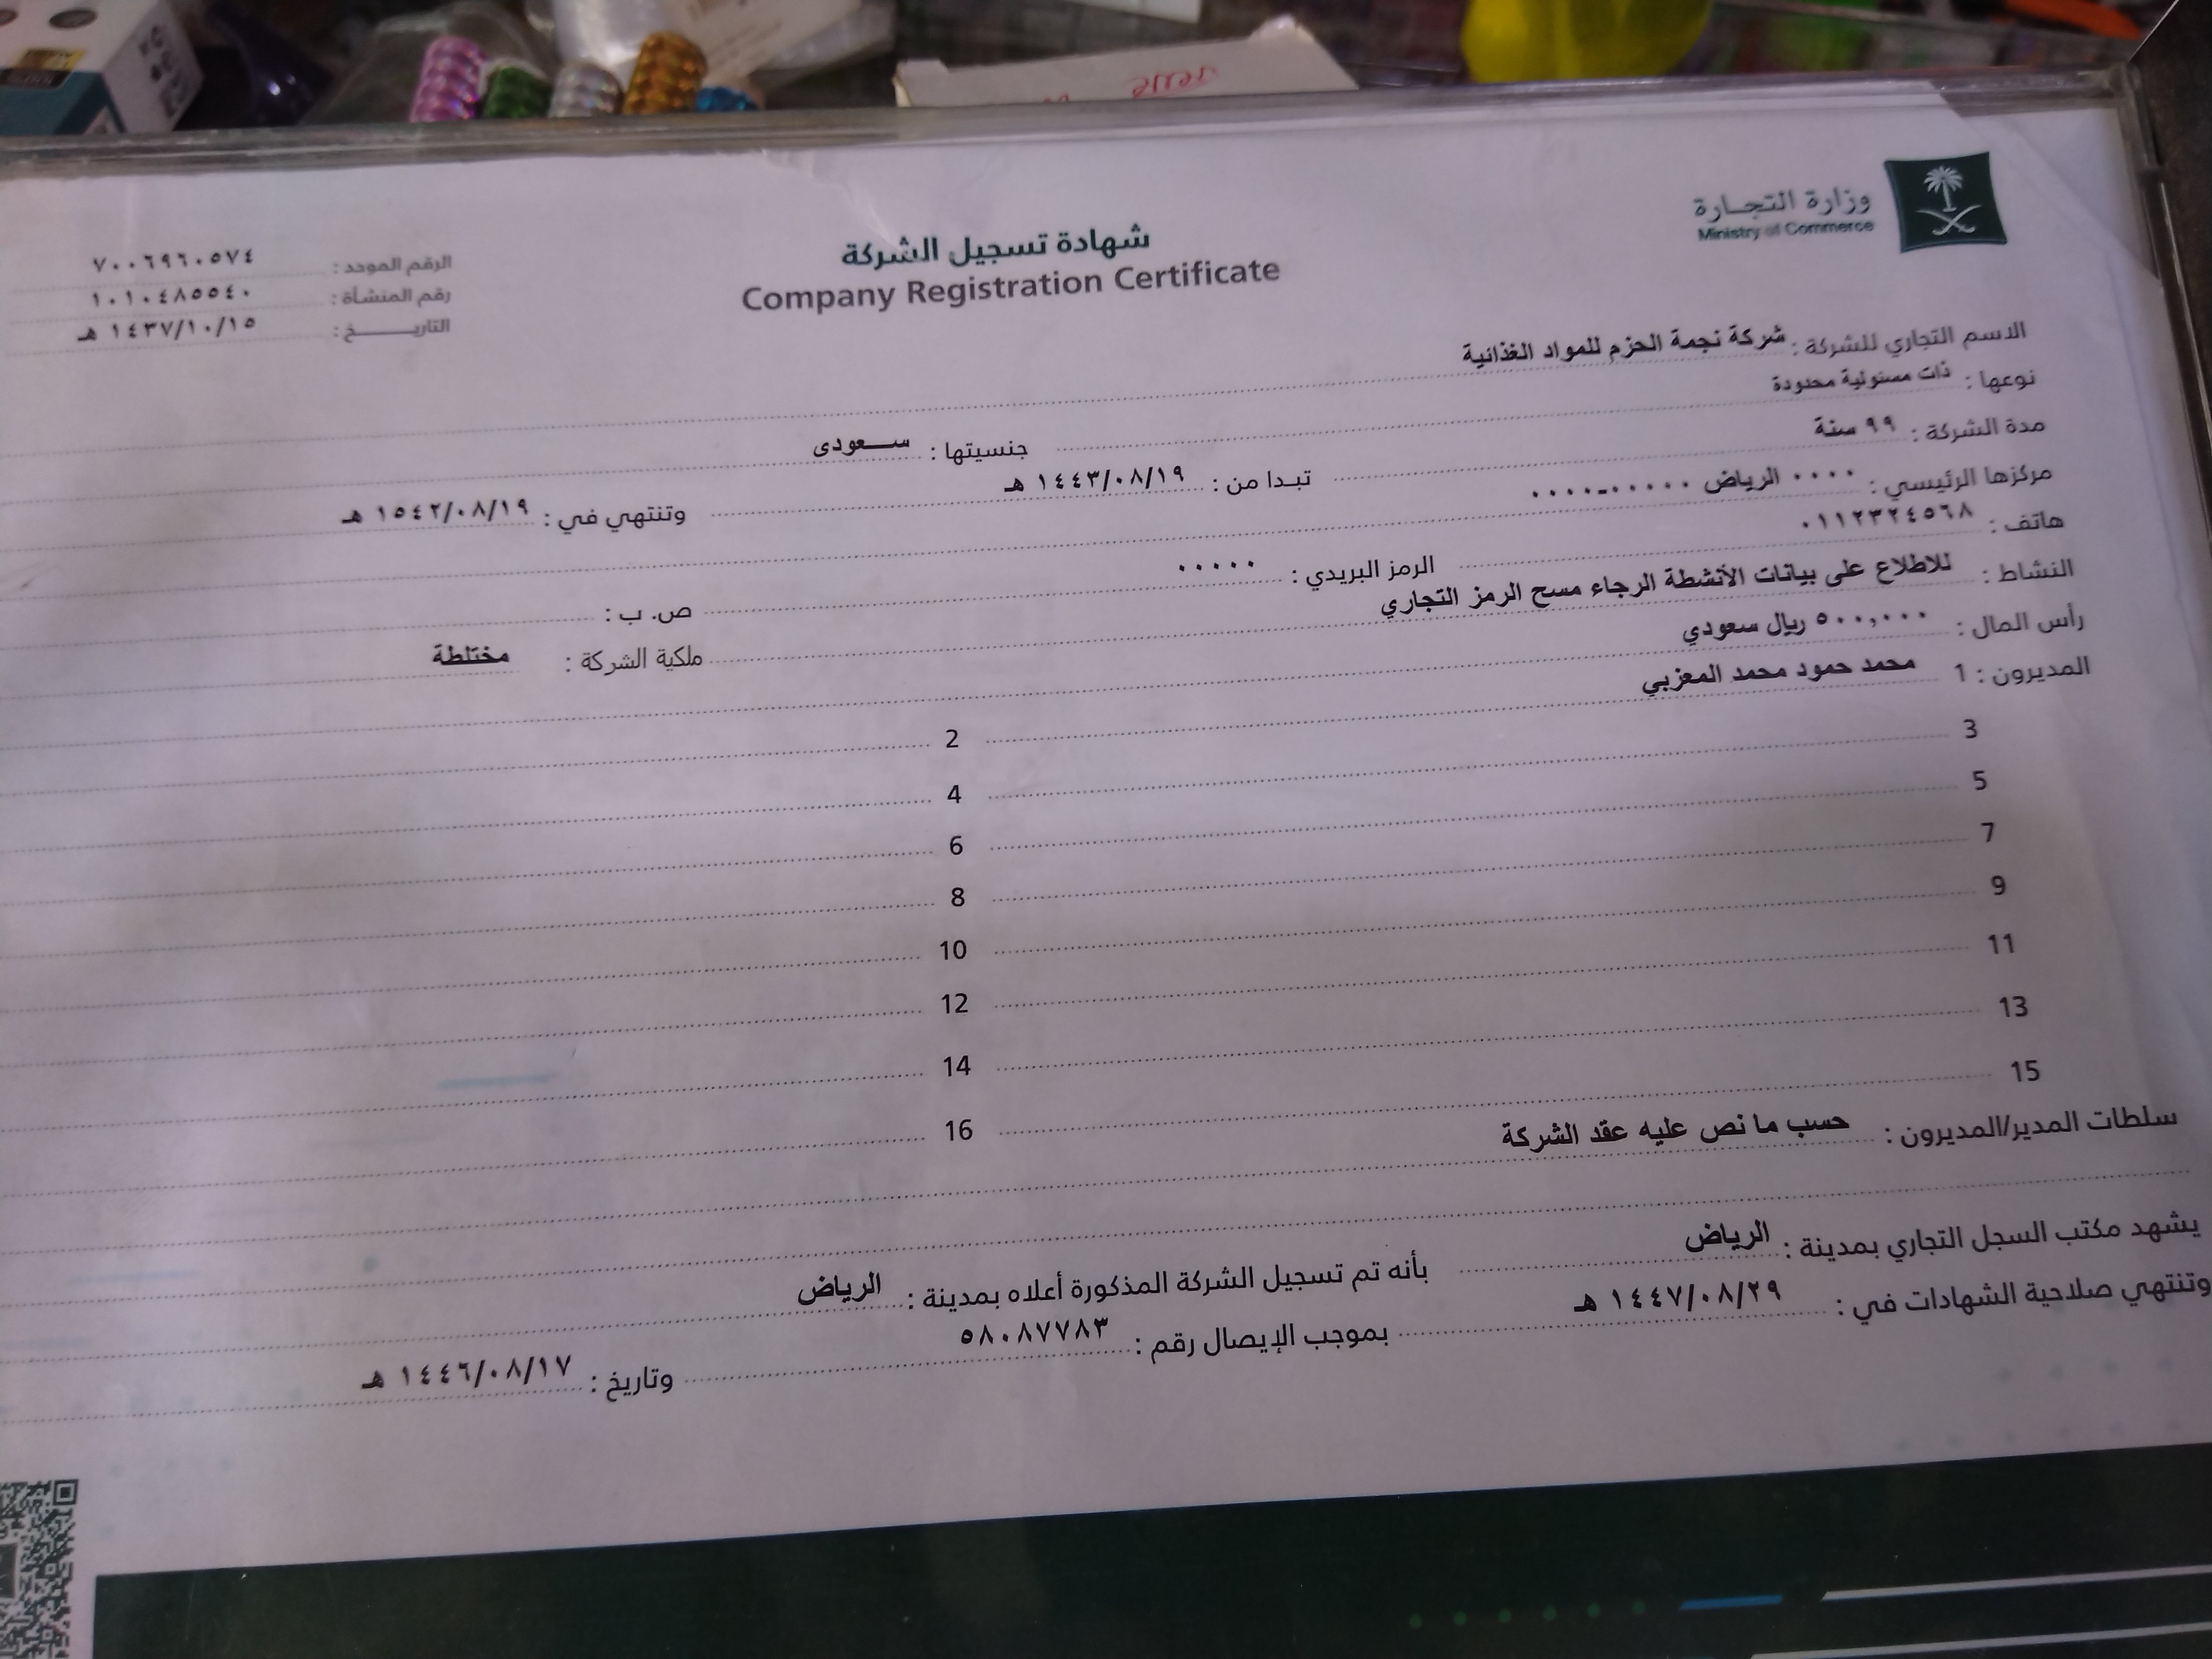 وزارة التجارة
Ministry of Commerce
شهادة تسجيل الشركة
Company Registration Certificate
الرقم الموحد : ٧٠٠٦٩٦٠٥٧٤
رقم المنشأة : ١٠١٠٤٨٥٥٤٠
التاريــــــخ : ١٤٣٧/١٠/١٥ هـ
الاسم التجاري للشركة : شركة نجمة الحزم للمواد الغذائية
نوعها : ذات مسئولية محدودة جنسيتها : ســـعودى
مدة الشركة : ٩٩ سنة تبـدا من : ١٤٤٣/٠٨/١٩ هـ وتنتهي في : ١٥٤٢/٠٨/١٩ هـ
مركزها الرئيسي : ٠٠٠٠ الرياض ٠٠٠٠٠-٠٠٠٠
هاتف : ٠١١٢٣٢٤٥٦٨ الرمز البريدي : ٠٠٠٠٠ ص. ب :
النشاط : للاطلاع على بيانات الأنشطة الرجاء مسح الرمز التجاري ملكية الشركة : مختلطة
رأس المال : ٥٠٠,٠٠٠ ريال سعودي
المديرون : 1 محمد حمود محمد المعزبي 2
3 4
5 6
7 8
9 10
11 12
13 14
15 16
سلطات المدير/المديرون : حسب ما نص عليه عقد الشركة
يشهد مكتب السجل التجاري بمدينة : الرياض بأنه تم تسجيل الشركة المذكورة أعلاه بمدينة : الرياض
وتنتهي صلاحية الشهادات في : ١٤٤٧/٠٨/٢٩ هـ بموجب الإيصال رقم : ٥٨٠٨٧٧٨٣ وتاريخ : ١٤٤٦/٠٨/١٧ هـ